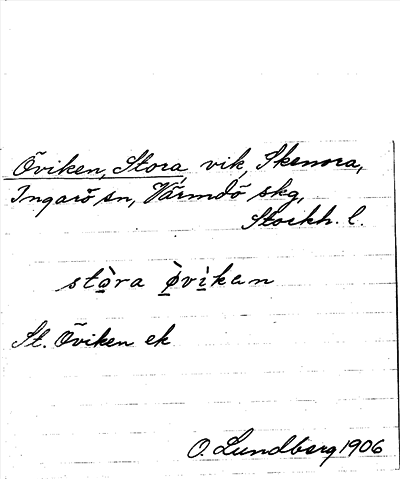 Öviken, Stora, vik, Skenora,
Ingarö sn, Värmdö skg,
Stockh. l.
stòra ø̀vìkan
St. Öviken ek
O. Lundberg 1906